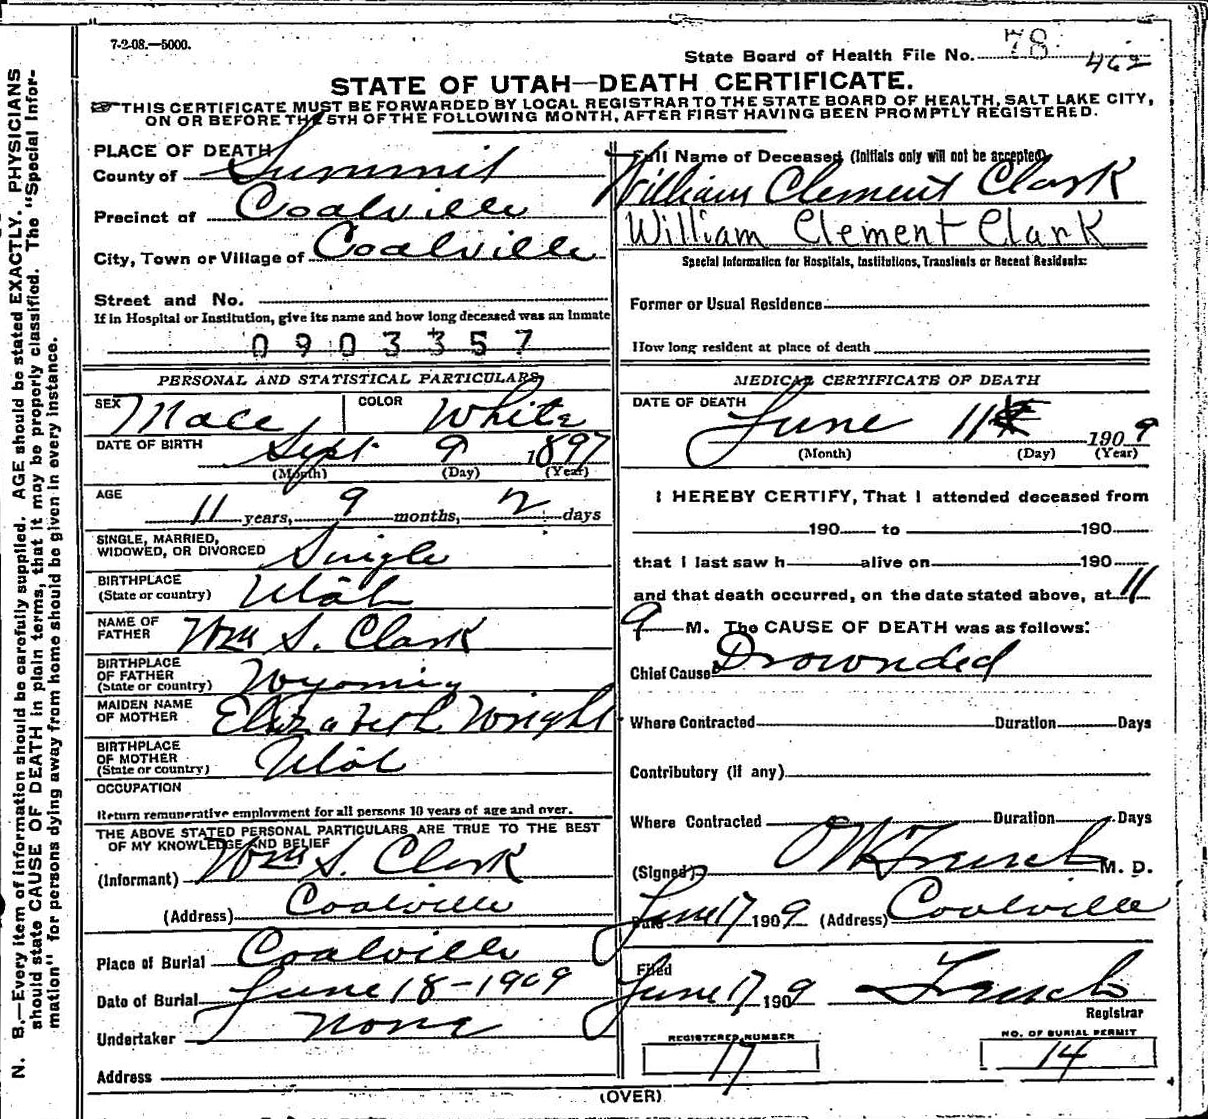 7-2-08.—5000.
State Board of Health File No. 78
462
STATE OF UTAH—DEATH CERTIFICATE.
THIS CERTIFICATE MUST BE FORWARDED BY LOCAL REGISTRAR TO THE STATE BOARD OF HEALTH, SALT LAKE CITY,
ON OR BEFORE THE 5TH OF THE FOLLOWING MONTH, AFTER FIRST HAVING BEEN PROMPTLY REGISTERED.
N. B.—Every item of information should be carefully supplied. AGE should be stated EXACTLY. PHYSICIANS
should state CAUSE OF DEATH in plain terms, that it may be properly classified. The "Special Infor-
mation" for persons dying away from home should be given in every instance.
PLACE OF DEATH
County of Summit
Precinct of Coalville
City, Town or Village of Coalville
Street and No.
If in Hospital or Institution, give its name and how long deceased was an inmate
0903357
PERSONAL AND STATISTICAL PARTICULARS
SEX Male COLOR White
DATE OF BIRTH Sept 9 1897
(Month) (Day) (Year)
AGE
11 years, 9 months, 2 days
SINGLE, MARRIED,
WIDOWED, OR DIVORCED Single
BIRTHPLACE
(State or country) Utah
NAME OF
FATHER Wm S. Clark
BIRTHPLACE
OF FATHER
(State or country) Wyoming
MAIDEN NAME
OF MOTHER Elizabeth Wright
BIRTHPLACE
OF MOTHER
(State or country) Utah
OCCUPATION
Return remunerative employment for all persons 10 years of age and over.
THE ABOVE STATED PERSONAL PARTICULARS ARE TRUE TO THE BEST
OF MY KNOWLEDGE AND BELIEF
(Informant) Wm S. Clark
(Address) Coalville
Place of Burial Coalville
Date of Burial June 18-1909
Undertaker none
Address
Full Name of Deceased (Initials only will not be accepted)
William Clement Clark
William Clement Clark
Special Information for Hospitals, Institutions, Transients or Recent Residents:
Former or Usual Residence
How long resident at place of death
MEDICAL CERTIFICATE OF DEATH
DATE OF DEATH
June 11 1909
(Month) (Day) (Year)
I HEREBY CERTIFY, That I attended deceased from
190 to 190
that I last saw h alive on 190
and that death occurred, on the date stated above, at 11
a M. The CAUSE OF DEATH was as follows:
Chief Cause Drownded
Where Contracted Duration Days
Contributory (if any)
Where Contracted Duration Days
(Signed) M. D.
Date June 17 1909 (Address) Coalville
Filed
June 17 1909
Registrar
REGISTERED NUMBER
17
NO. OF BURIAL PERMIT
14
(OVER)